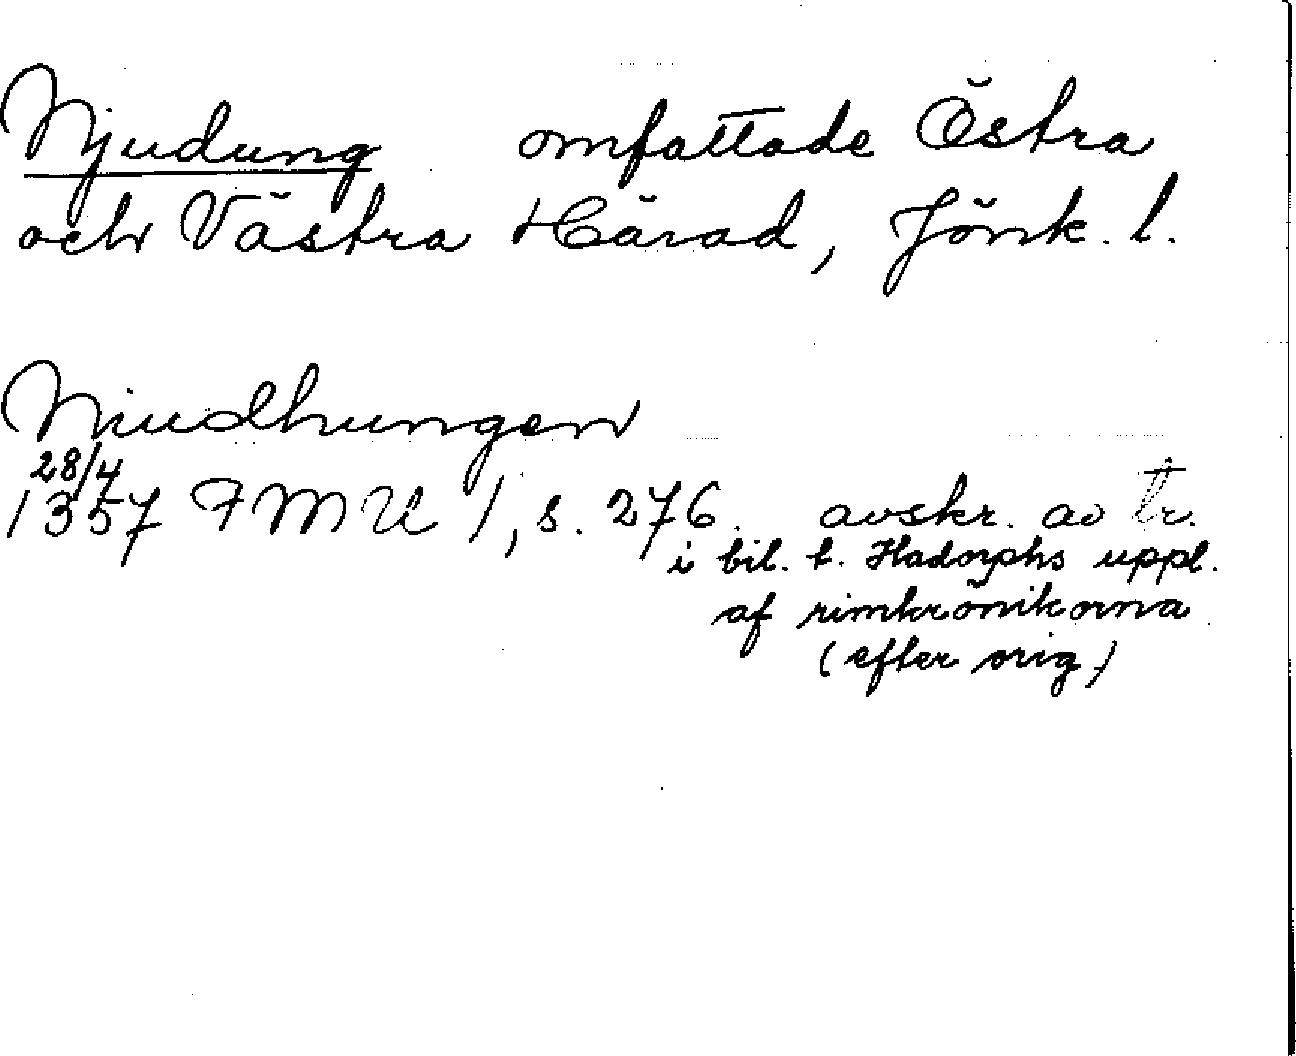 Njudung omfattade Östra
och Västra Härad, Jönk. l.
Niudhungen
28/4
1357 FMU 1, s. 276. avskr. av tr.
i bil. t. Hadorphs uppl.
af rimkrönikorna
(efter orig)